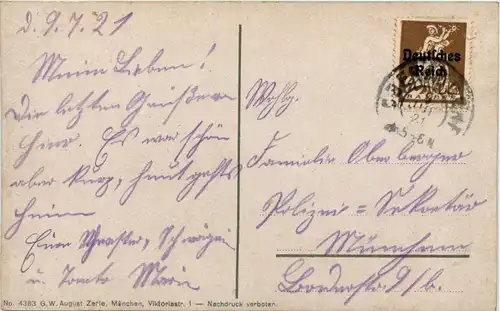 d. 9.7.21
Meine Lieben!
Die letzten Grüße von
hier. Es war schön
aber kurz, heut gehts
heim
Eure Schwester, Schwägerin
u. Tante Marie
Deutsches
Reich
Wohlg.
Familie Oberberger
Polizei = Sekretär
München
9/b.
No. 4383 G.W. August Zerle, München, Viktoriastr. 1 — Nachdruck verboten.